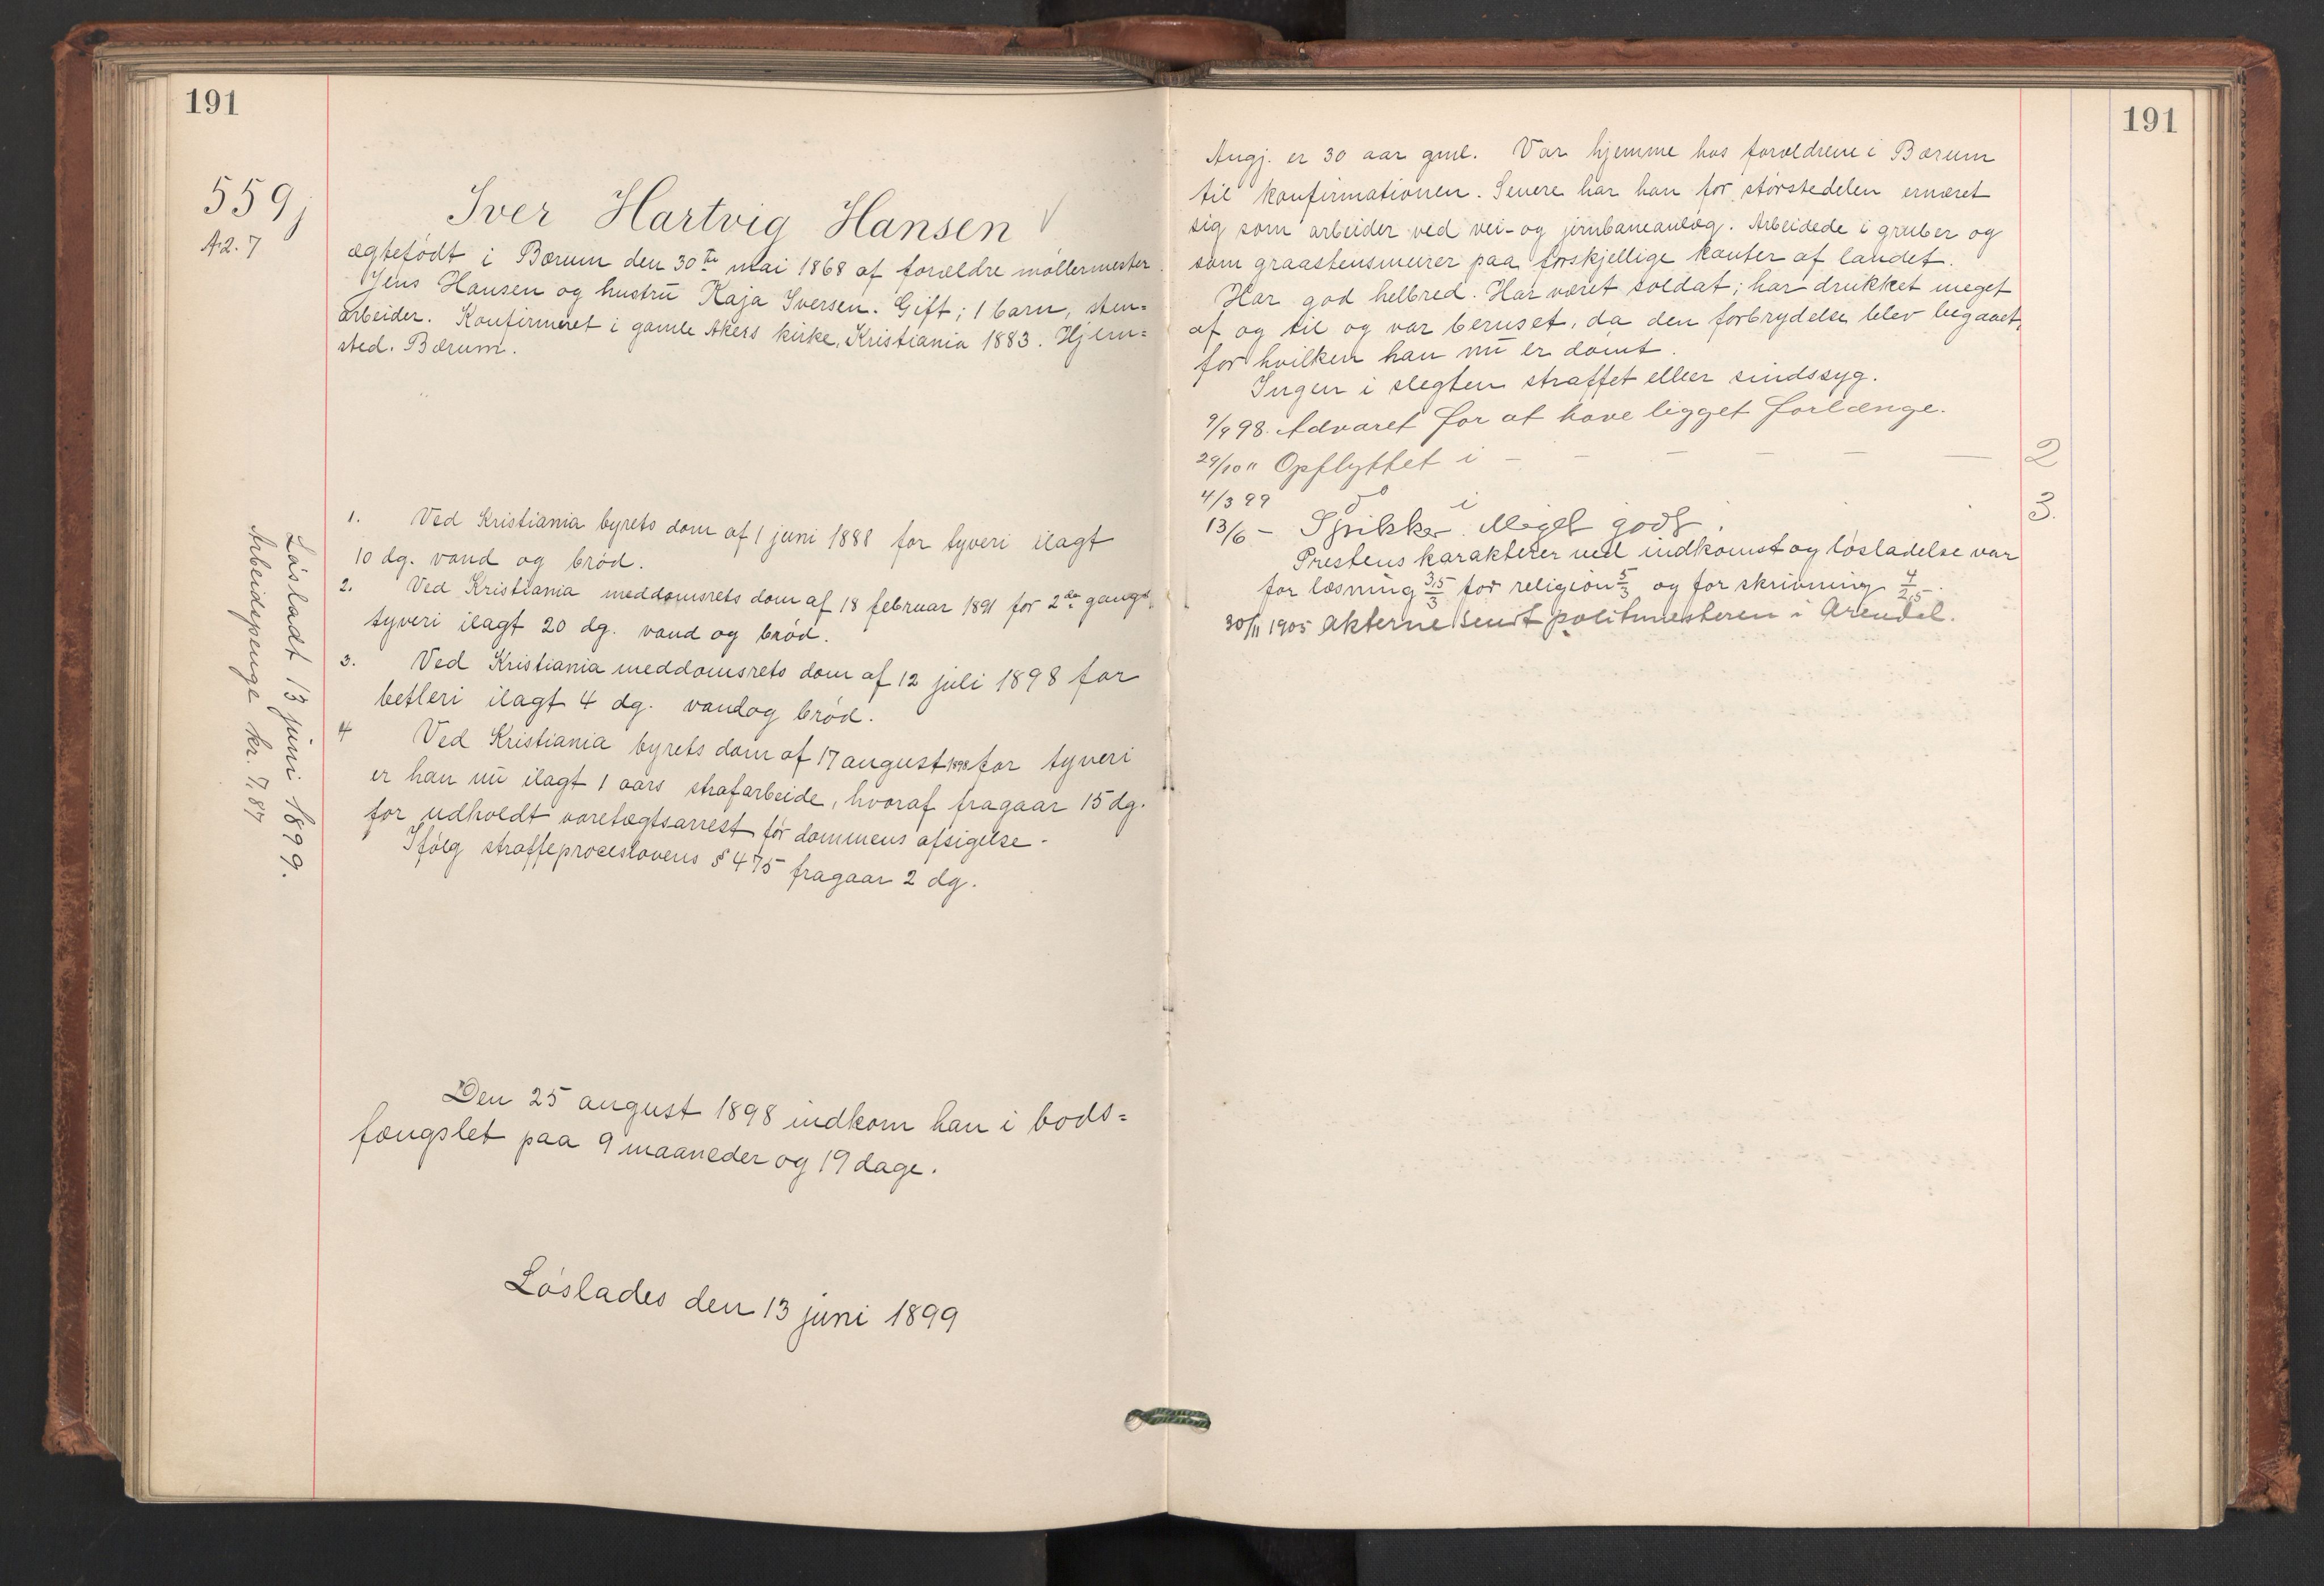 191
559j
A2.7
Iver Hartvig Hansen √
ægtefødt i Bærum den 30te mai 1868 af forældre møllermester
Jens Hansen og hustru Kaja Iversen. Gift; 1 barn, sten=
arbeider. Konfirmeret i gamle Akers kirke, Kristiania 1883. Hjem=
sted. Bærum.
1. Ved Kristiania byrets dom af 1 juni 1888 for tyveri ilagt
10 dg. vand og brød.
2. Ved Kristiania meddomsrets dom af 18 februar 1891 for 2de gangs
tyveri ilagt 20 dg. vand og brød.
3. Ved Kristiania meddomsrets dom af 12 juli 1898 for
betleri ilagt 4 dg. vand og brød.
4 Ved Kristiania byrets dom af 17 august 1898 for tyveri
er han nu ilagt 1 aars strafarbeide, hvoraf fragaar 15 dg.
for udholdt varetægtsarrest før dommens afsigelse.
Ifølg straffeproceslovens § 475 fragaar 2 dg.
Løsladt 13 juni 1899.
Arbeidspenge kr. 7,87
Den 25 august 1898 indkom han i bods=
fængslet paa 9 maaneder og 19 dage.
Løslades den 13 juni 1899
191
Angj. er 30 aar gml. Var hjemme hos forældrene i Bærum
til konfirmationen. Senere har han for størstedelen ernæret
sig som arbeider ved vei- og jernbaneanlæg. Arbeidede i gruber og
som graastensmurer paa forskjellige kanter af landet.
Har god helbred. Har været soldat; har drukket meget
af og til og var beruset, da den forbrydelse blev begaaet,
for hvilken han nu er dømt.
Ingen i slegten straffet eller sindssyg.
9/9 98. Advaret for at have ligget forlænge.
29/10 " Opflyttet i – – – – – 2
4/3 99 do i 3.
13/6 – Spikker. Meget godt.
Prestens karakterer ved indkomst og løsladelse var
for læsning 3,5/3 for religion 5/3 og for skrivning 4/2,5.
30/11 1905 Akterne sendt politimesteren i Arendal.